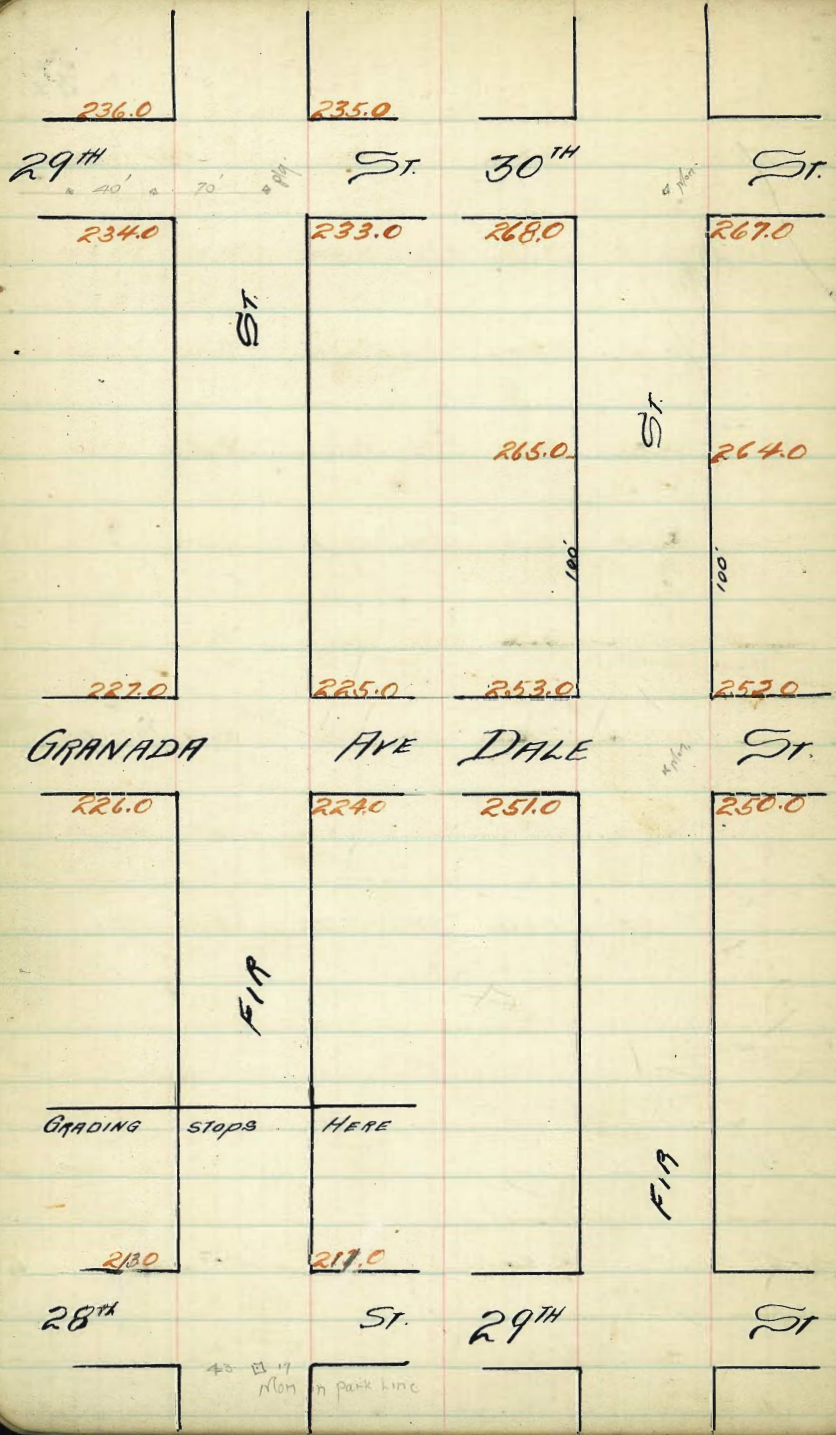 236.0 235.0
29TH St. 30TH St.
40' 70' Plg. Mon.
234.0 233.0 268.0 267.0
St.
St.
265.0 264.0
100' 100'
227.0 225.0 253.0 252.0
GRANADA AVE DALE St.
Mon.
226.0 224.0 251.0 250.0
FIR
GRADING STOPS HERE
FIR
213.0 211.0
28TH St. 29TH St
Mon in park Line